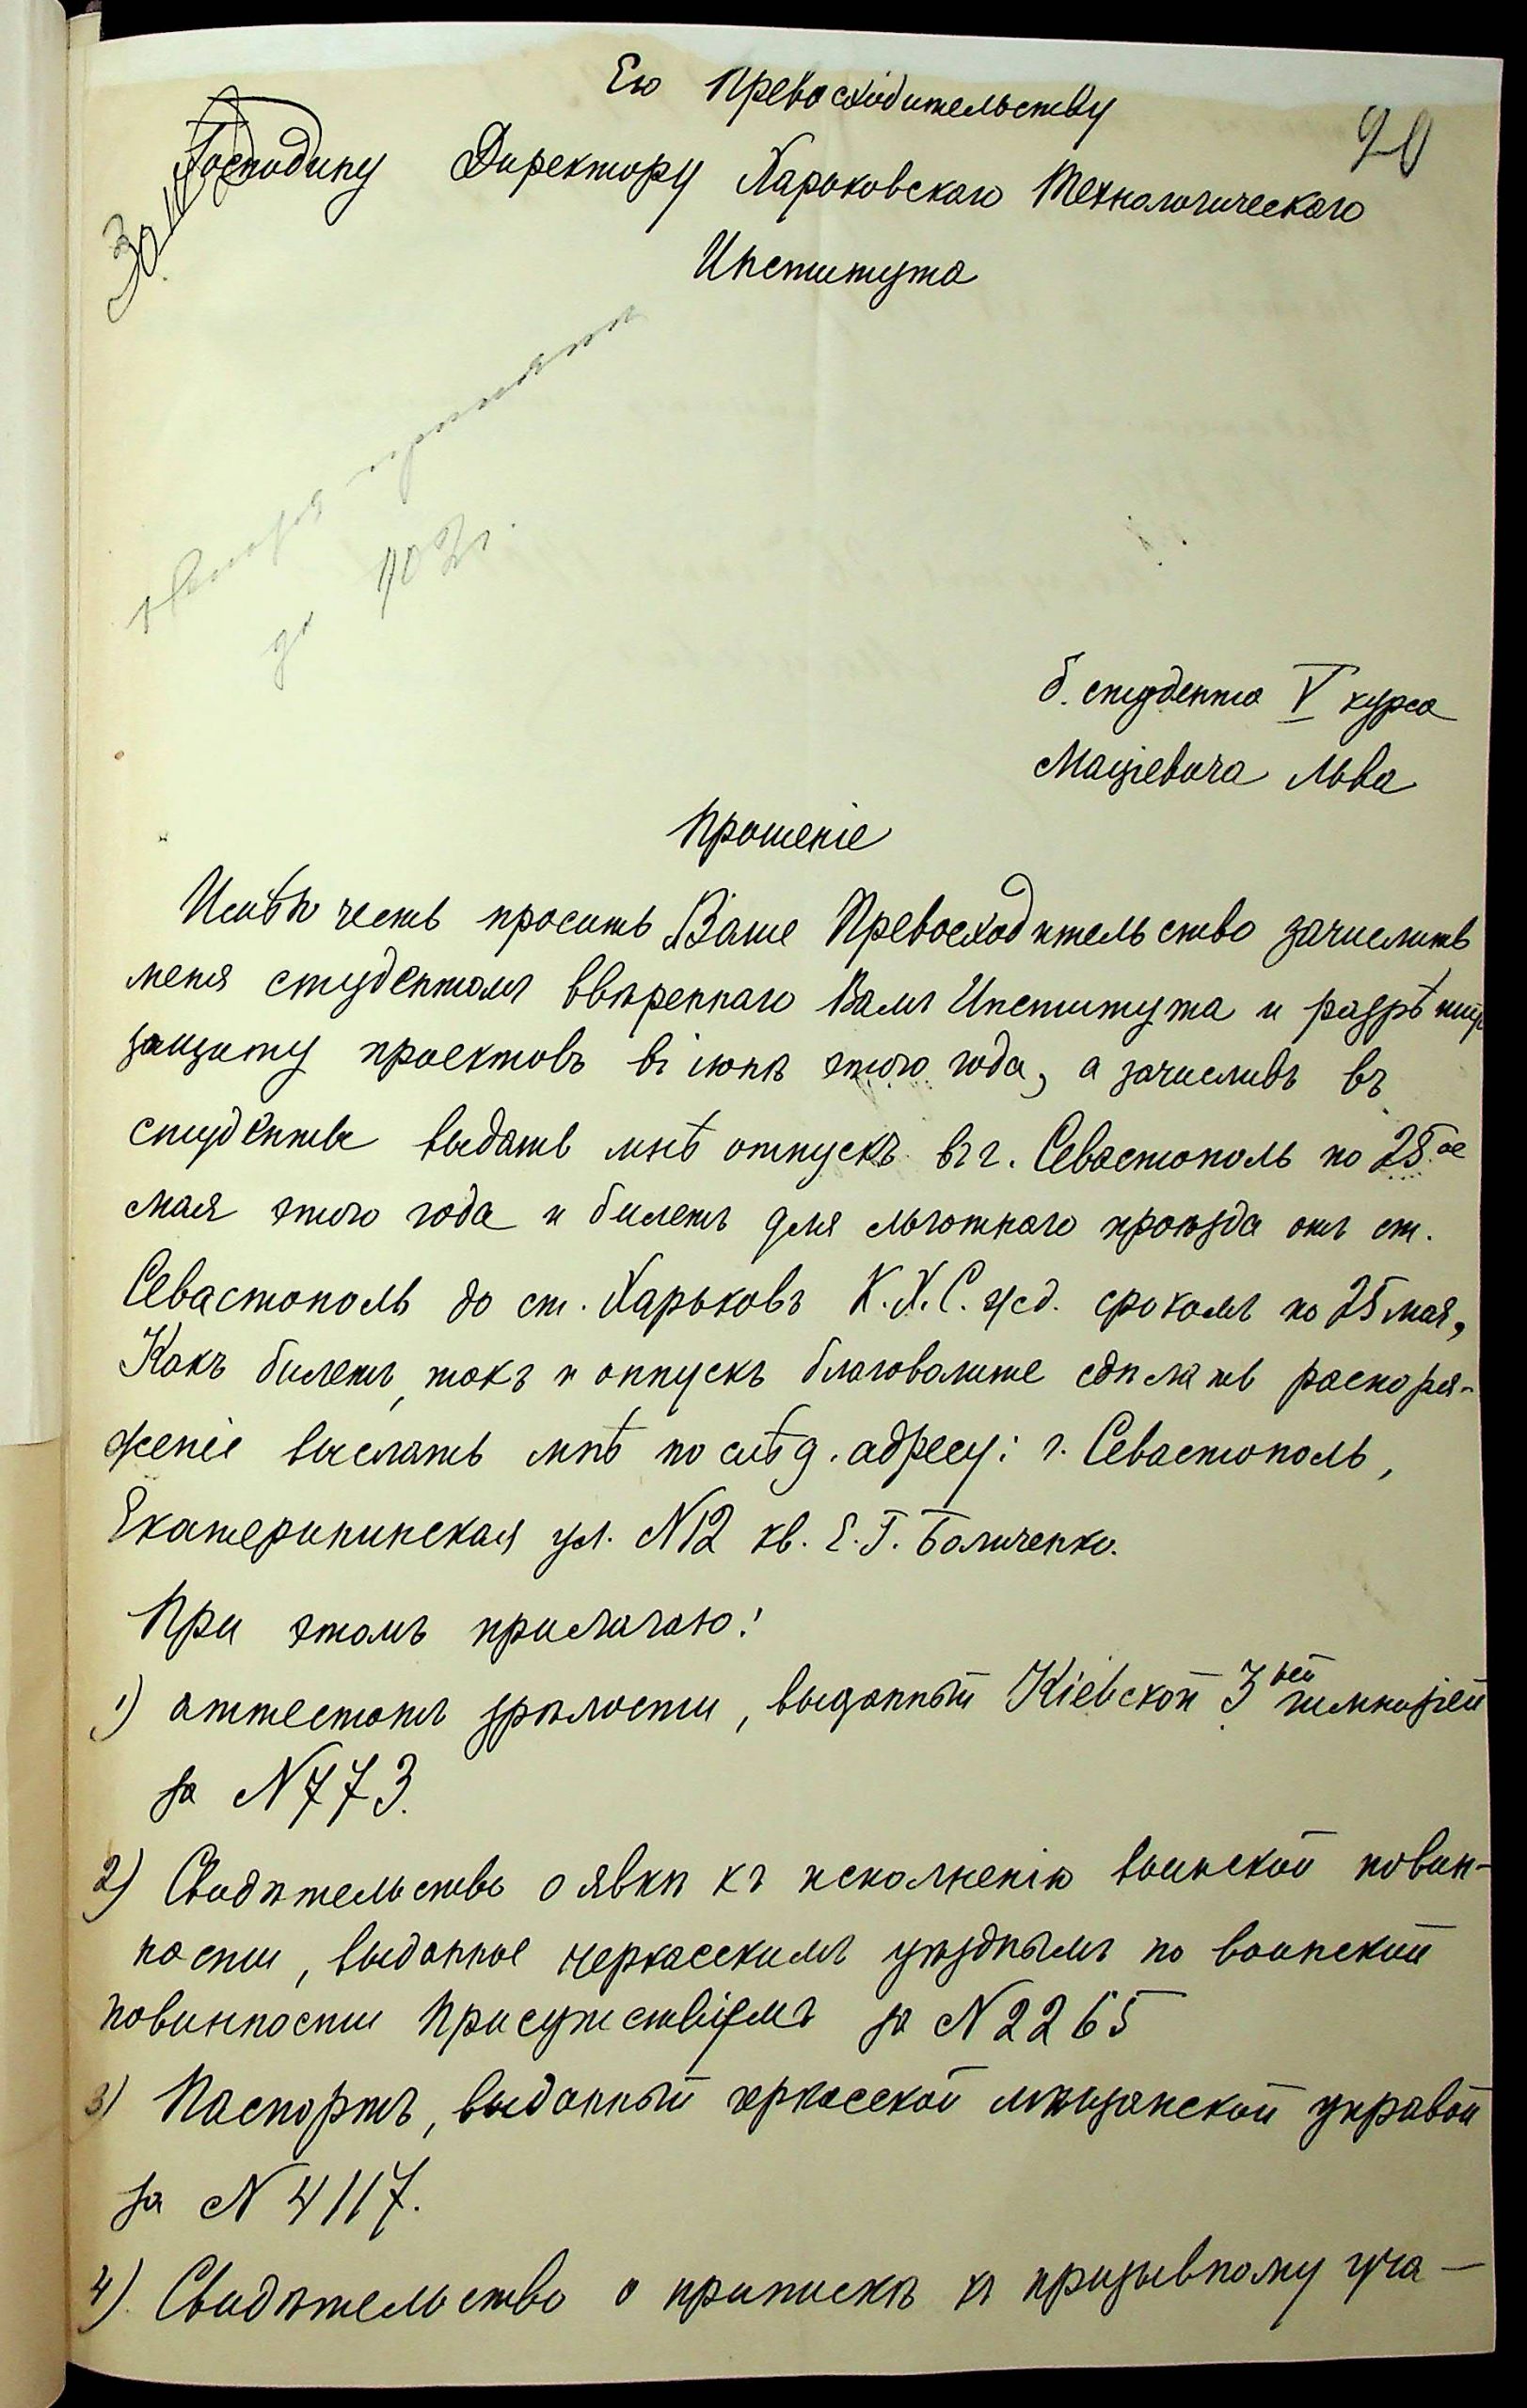 Его Превосходительству
20
Господину Директору Харьковскаго Технологическаго
Института
до 902 г.
б. студента V курса
Мацѣевича Льва
Прошеніе
Имѣю честь просить Ваше Превосходительство зачислить
меня студентомъ ввѣреннаго Вамъ Института и разрѣшить
защиту проектовъ въ іюнѣ этого года, а зачисливъ въ
студенты выдать мнѣ отпускъ въ г. Севастополь по 25ое
мая этого года и билетъ для льготнаго проѣзда отъ ст.
Севастополь до ст. Харьковъ К.Х.С. ж.д. срокомъ по 25 мая,
Какъ билетъ, такъ и отпускъ благоволите сдѣлать распоря-
женіе выслать мнѣ по слѣд. адресу: г. Севастополь,
Екатерининская ул. N12 кв. Е.Г.
При этомъ прилагаю:
1) аттестатъ зрѣлости, выданный Кіевской 3ьей гимназіей
за N773.
2) Свидѣтельство о явкѣ къ исполненію воинской повин-
ности, выданное черкасскимъ уѣзднымъ по воинской
повинности Присутствіемъ за N2265
3) Паспортъ, выданный черкасской мѣщанской управой
за N4117.
4) Свидѣтельство о припискѣ къ призывному уча-